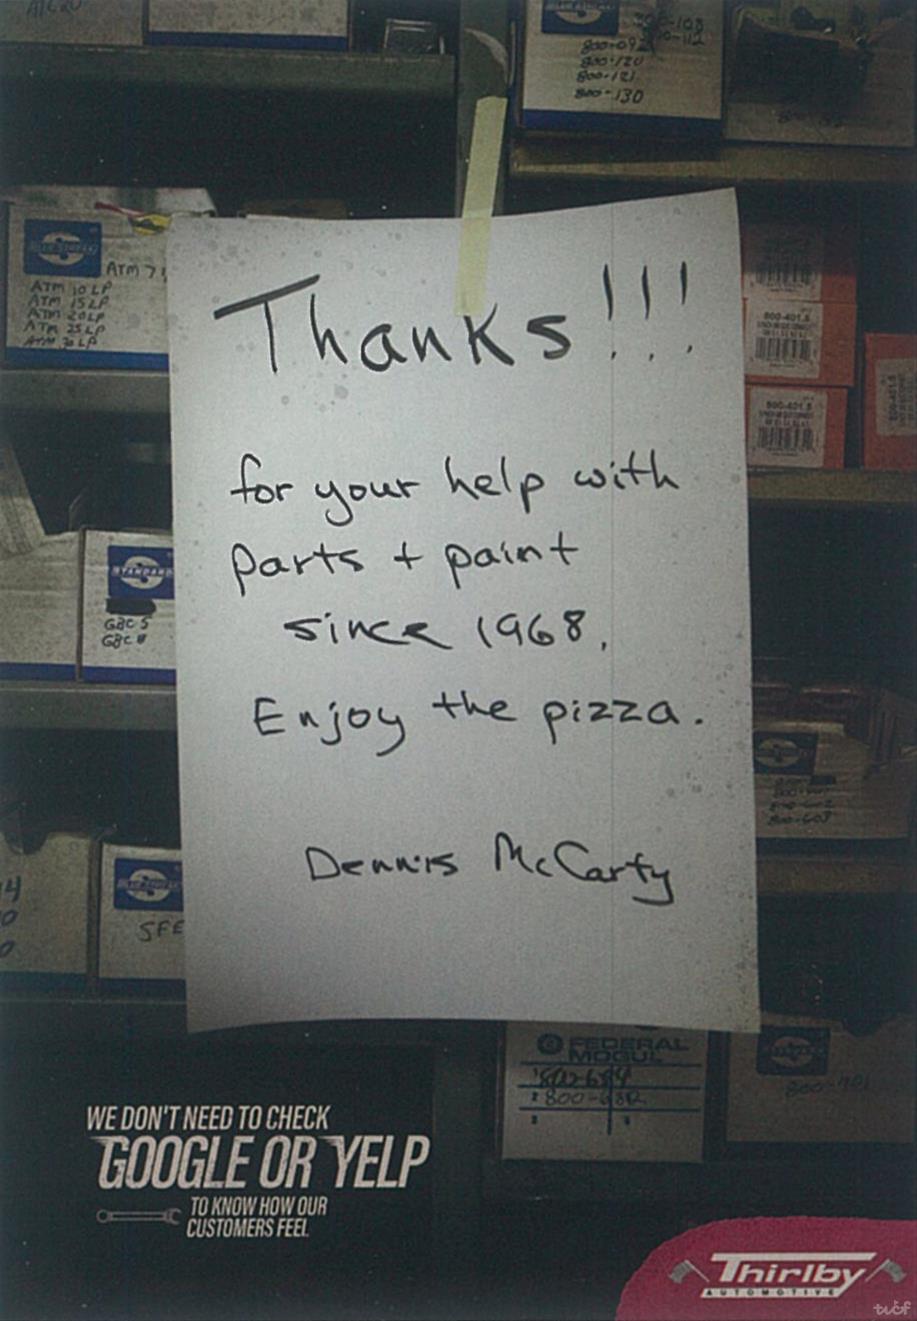 800-108
800-112
800-120
800-121
800-130
ATM 10 LP
ATM 15 LP
ATM 20 LP
ATM 25 LP
ATM 30 LP
Thanks!!!
for your help with
parts + paint
since 1968.
Enjoy the pizza.
Dennis McCarty
800-401.5
800-401.5
STANDARD
GBC 5
SFE
FEDERAL
MOGUL
WE DON'T NEED TO CHECK
GOOGLE OR YELP
TO KNOW HOW OUR
CUSTOMERS FEEL.
Thirlby
AUTOMOTIVE